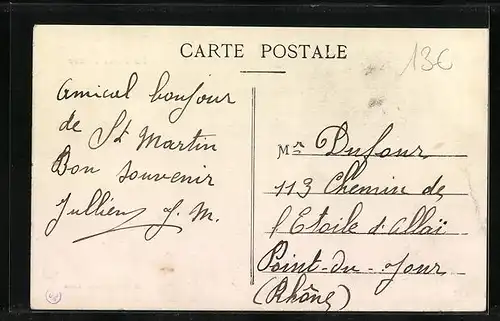 CARTE POSTALE
13€
Amical bonjour
de St Martin
Bon souvenir
Jullien J. M.
Mr Dufour
113 Chemin de
l'Etoile d'Allaï
Point-du-Jour
(Rhône)